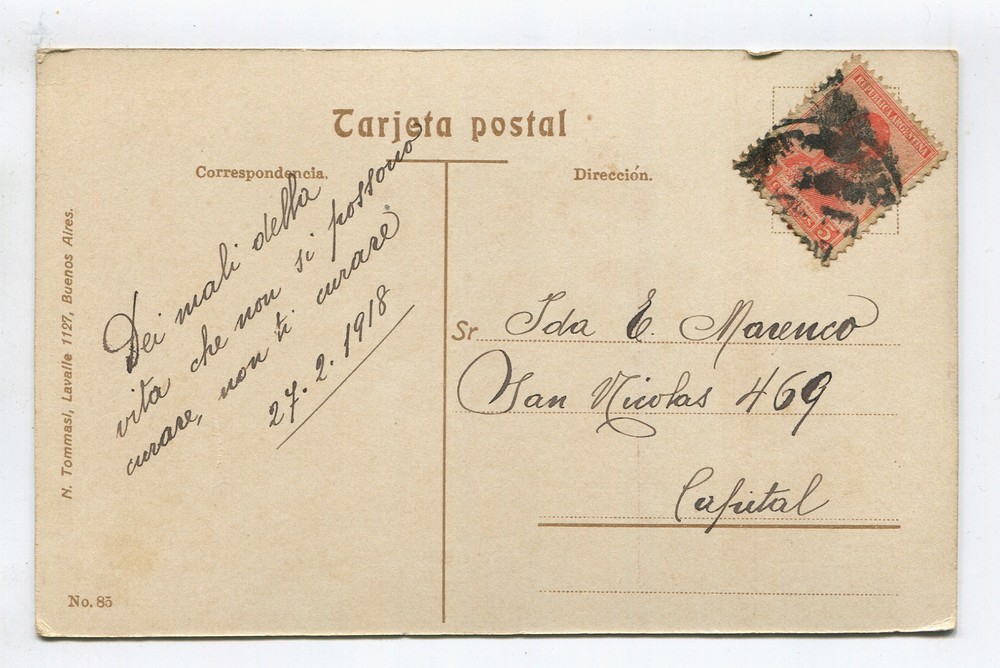 Tarjeta postal
Correspondencia.
Dirección.
Dei mali della
vita che non si possono
curare, non ti curare
27.2.1918
REPUBLICA ARGENTINA
5
Sr. Ida E. Marenco
San Nicolas 469
Capital
N. Tommasi, Lavalle 1127, Buenos Aires.
No. 85